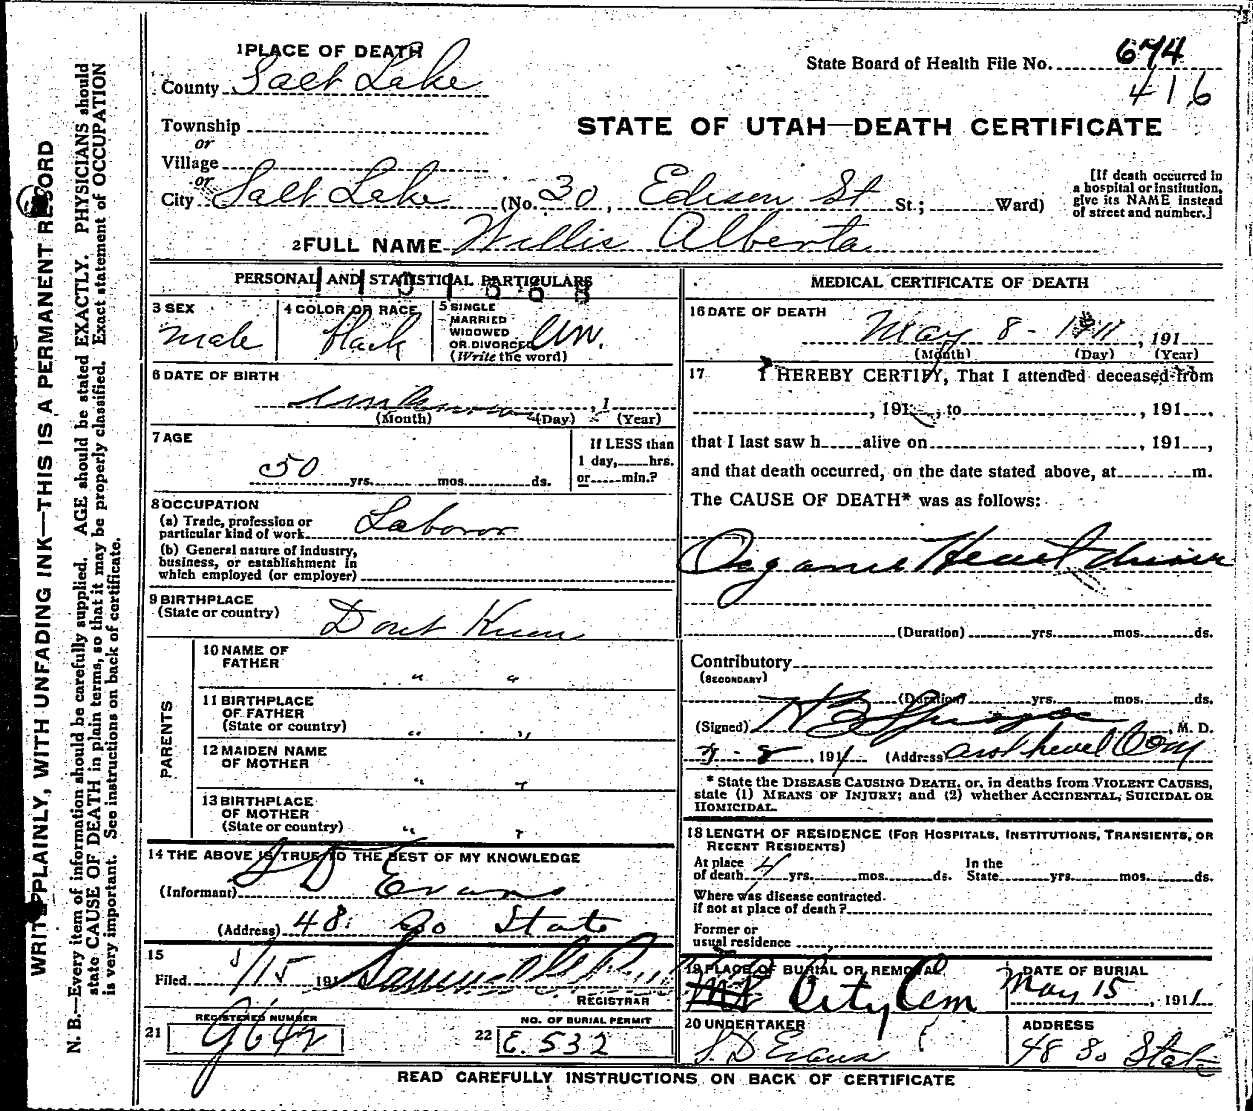 1 PLACE OF DEATH
County Salt Lake
State Board of Health File No. 674
416
Township
or
Village
or
STATE OF UTAH—DEATH CERTIFICATE
City Salt Lake (No. 30, Edison St St.; Ward)
[If death occurred in a hospital or institution, give its NAME instead of street and number.]
2 FULL NAME Willis Alberta
PERSONAL AND STATISTICAL PARTICULARS
3 SEX
male
4 COLOR OR RACE
black
5 SINGLE
MARRIED
WIDOWED
OR DIVORCED
(Write the word)
Un.
6 DATE OF BIRTH
Unknown, 1
(Month) (Day) (Year)
7 AGE
50 yrs. mos. ds.
If LESS than
1 day, hrs.
or min.?
8 OCCUPATION
(a) Trade, profession or
particular kind of work Laboror
(b) General nature of industry,
business, or establishment in
which employed (or employer)
9 BIRTHPLACE
(State or country) Dont Know
PARENTS
10 NAME OF
FATHER " "
11 BIRTHPLACE
OF FATHER
(State or country) " "
12 MAIDEN NAME
OF MOTHER " "
13 BIRTHPLACE
OF MOTHER
(State or country) " "
14 THE ABOVE IS TRUE TO THE BEST OF MY KNOWLEDGE
(Informant) S D Evans
(Address) 48 So State
15
Filed 5/15 191
REGISTRAR
REGISTERED NUMBER
21 G642
NO. OF BURIAL PERMIT
22 E. 532
MEDICAL CERTIFICATE OF DEATH
16 DATE OF DEATH
May 8 - 1911, 191
(Month) (Day) (Year)
17 I HEREBY CERTIFY, That I attended deceased from
, 191 , to , 191 ,
that I last saw h alive on , 191 ,
and that death occurred, on the date stated above, at m.
The CAUSE OF DEATH* was as follows:
Organic Heart disease
(Duration) yrs. mos. ds.
Contributory
(SECONDARY)
(Duration) yrs. mos. ds.
(Signed) M. D.
8, 1911 (Address)
* State the DISEASE CAUSING DEATH, or, in deaths from VIOLENT CAUSES,
state (1) MEANS OF INJURY; and (2) whether ACCIDENTAL, SUICIDAL OR
HOMICIDAL.
18 LENGTH OF RESIDENCE (FOR HOSPITALS, INSTITUTIONS, TRANSIENTS, OR
RECENT RESIDENTS)
At place
of death 4 yrs. mos. ds.
In the
State yrs. mos. ds.
Where was disease contracted.
if not at place of death?
Former or
usual residence
19 PLACE OF BURIAL OR REMOVAL
City Cem
DATE OF BURIAL
May 15, 1911
20 UNDERTAKER
S. D Evans
ADDRESS
48 So State
READ CAREFULLY INSTRUCTIONS ON BACK OF CERTIFICATE
WRITE PLAINLY, WITH UNFADING INK—THIS IS A PERMANENT RECORD
N. B.—Every item of information should be carefully supplied. AGE should be stated EXACTLY. PHYSICIANS should
state CAUSE OF DEATH in plain terms, so that it may be properly classified. Exact statement of OCCUPATION
is very important. See instructions on back of certificate.